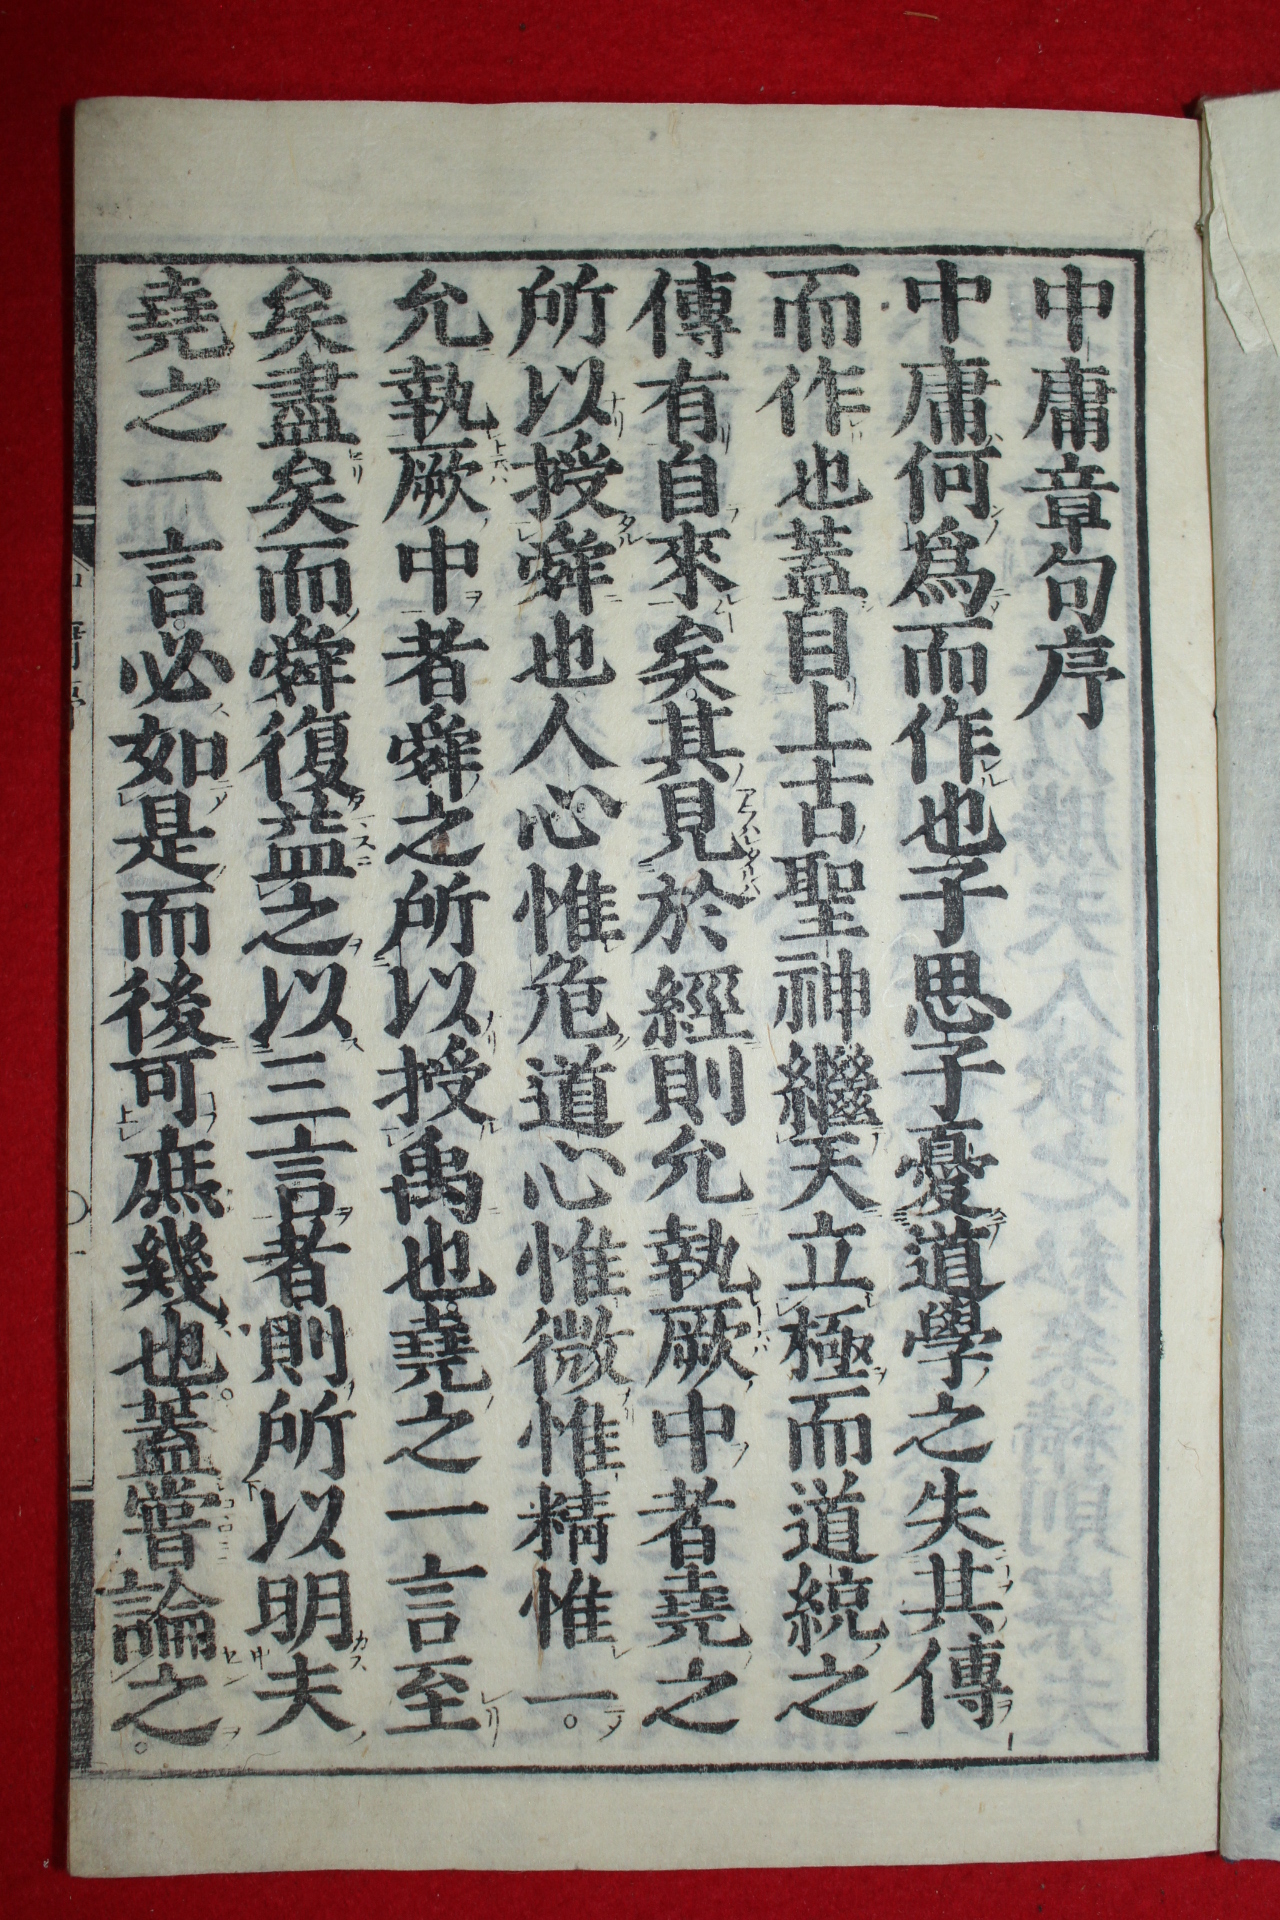 中庸章句序
中庸何爲而作也子思子憂道學之失其傳
而作也蓋自上古聖神繼天立極而道統之
傳有自來矣其見於經則允執厥中者堯之
所以授舜也人心惟危道心惟微惟精惟一
允執厥中者舜之所以授禹也堯之一言至
矣盡矣而舜復益之以三言者則所以明夫
堯之一言必如是而後可庶幾也蓋嘗論之